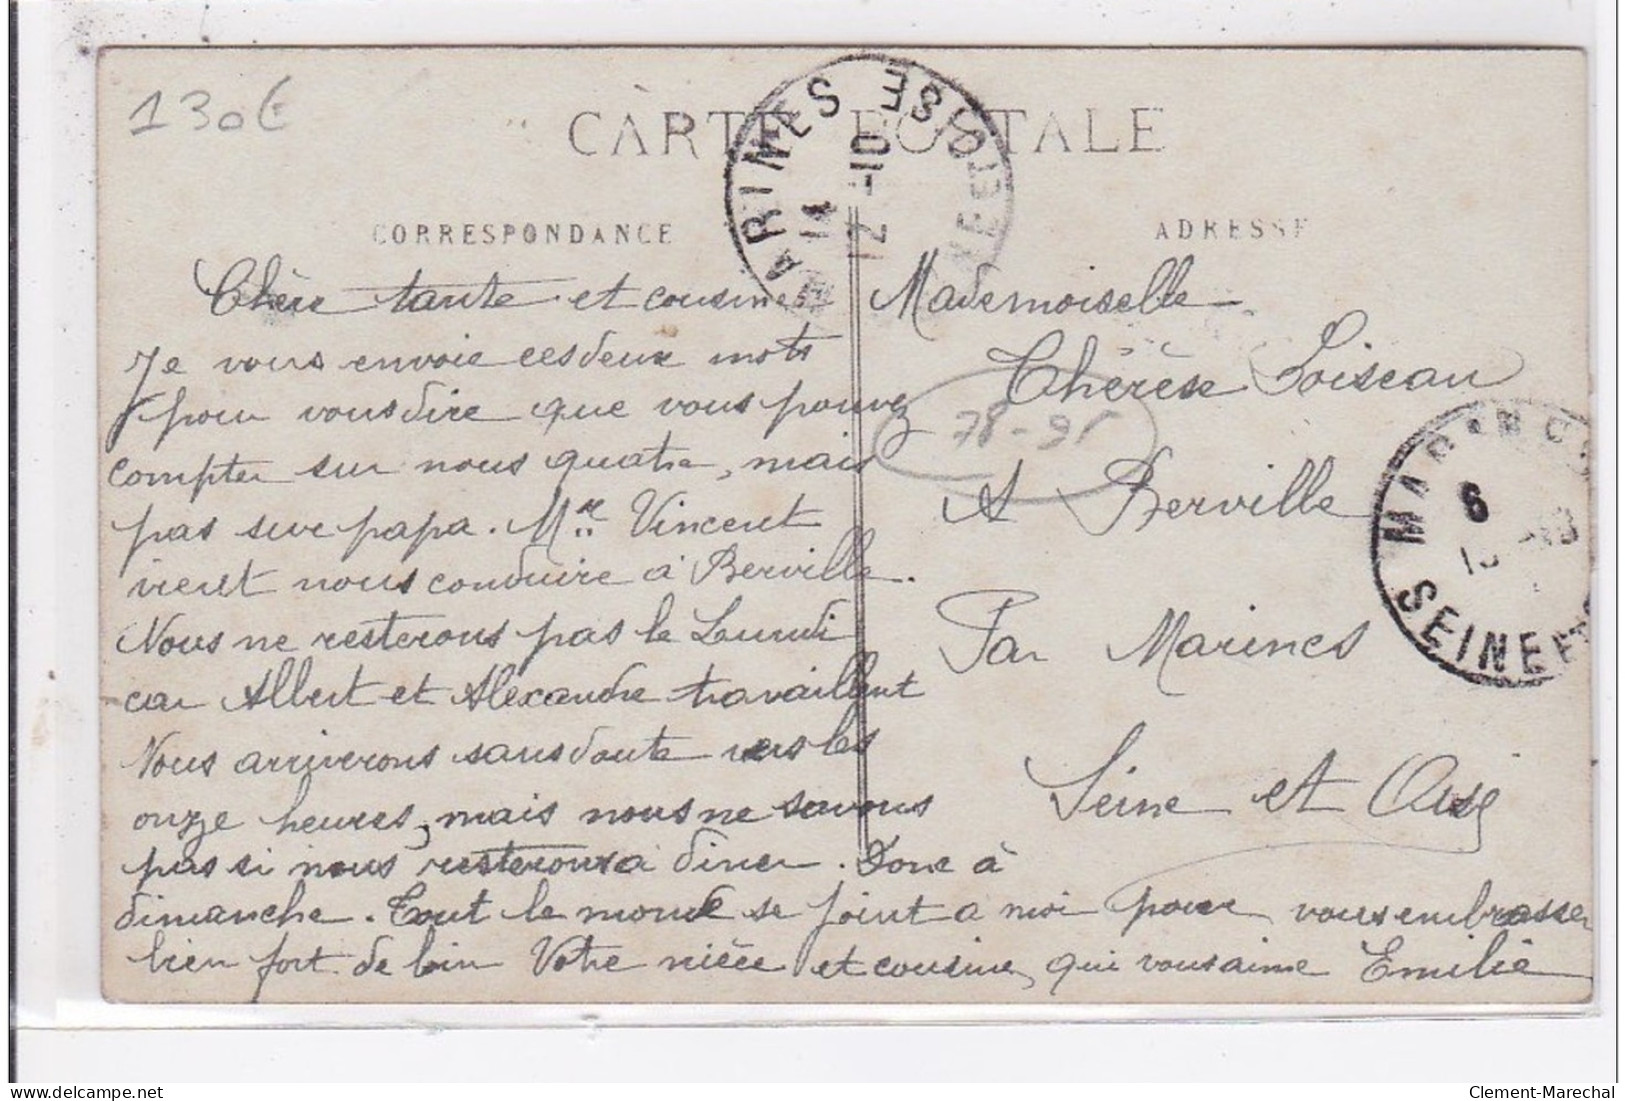 130€
CARTE POSTALE
MARINES
SEINE ET OISE
12-10
CORRESPONDANCE
ADRESSE
Chère tante et cousine
Je vous envoie ces deux mots
pour vous dire que vous pouvez
compter sur nous quatre, mais
pas sur papa. Mr Vincent
vient nous conduire à Berville.
Nous ne resterons pas le Lundi
car Albert et Alexandre travaillent
Nous arriverons sans doute vers les
onze heures, mais nous ne savons
pas si nous resterons a diner. Donc à
dimanche. Tout le monde se joint a moi pour vous embrasser
bien fort de loin Votre nièce et cousine, qui vous aime Emilie
Mademoiselle
Thérèse Loiseau
78-95
A Berville
Par Marines
Seine et Oise
MARINES
6
SEINE ET
delcampe.net
Clement-Marechal